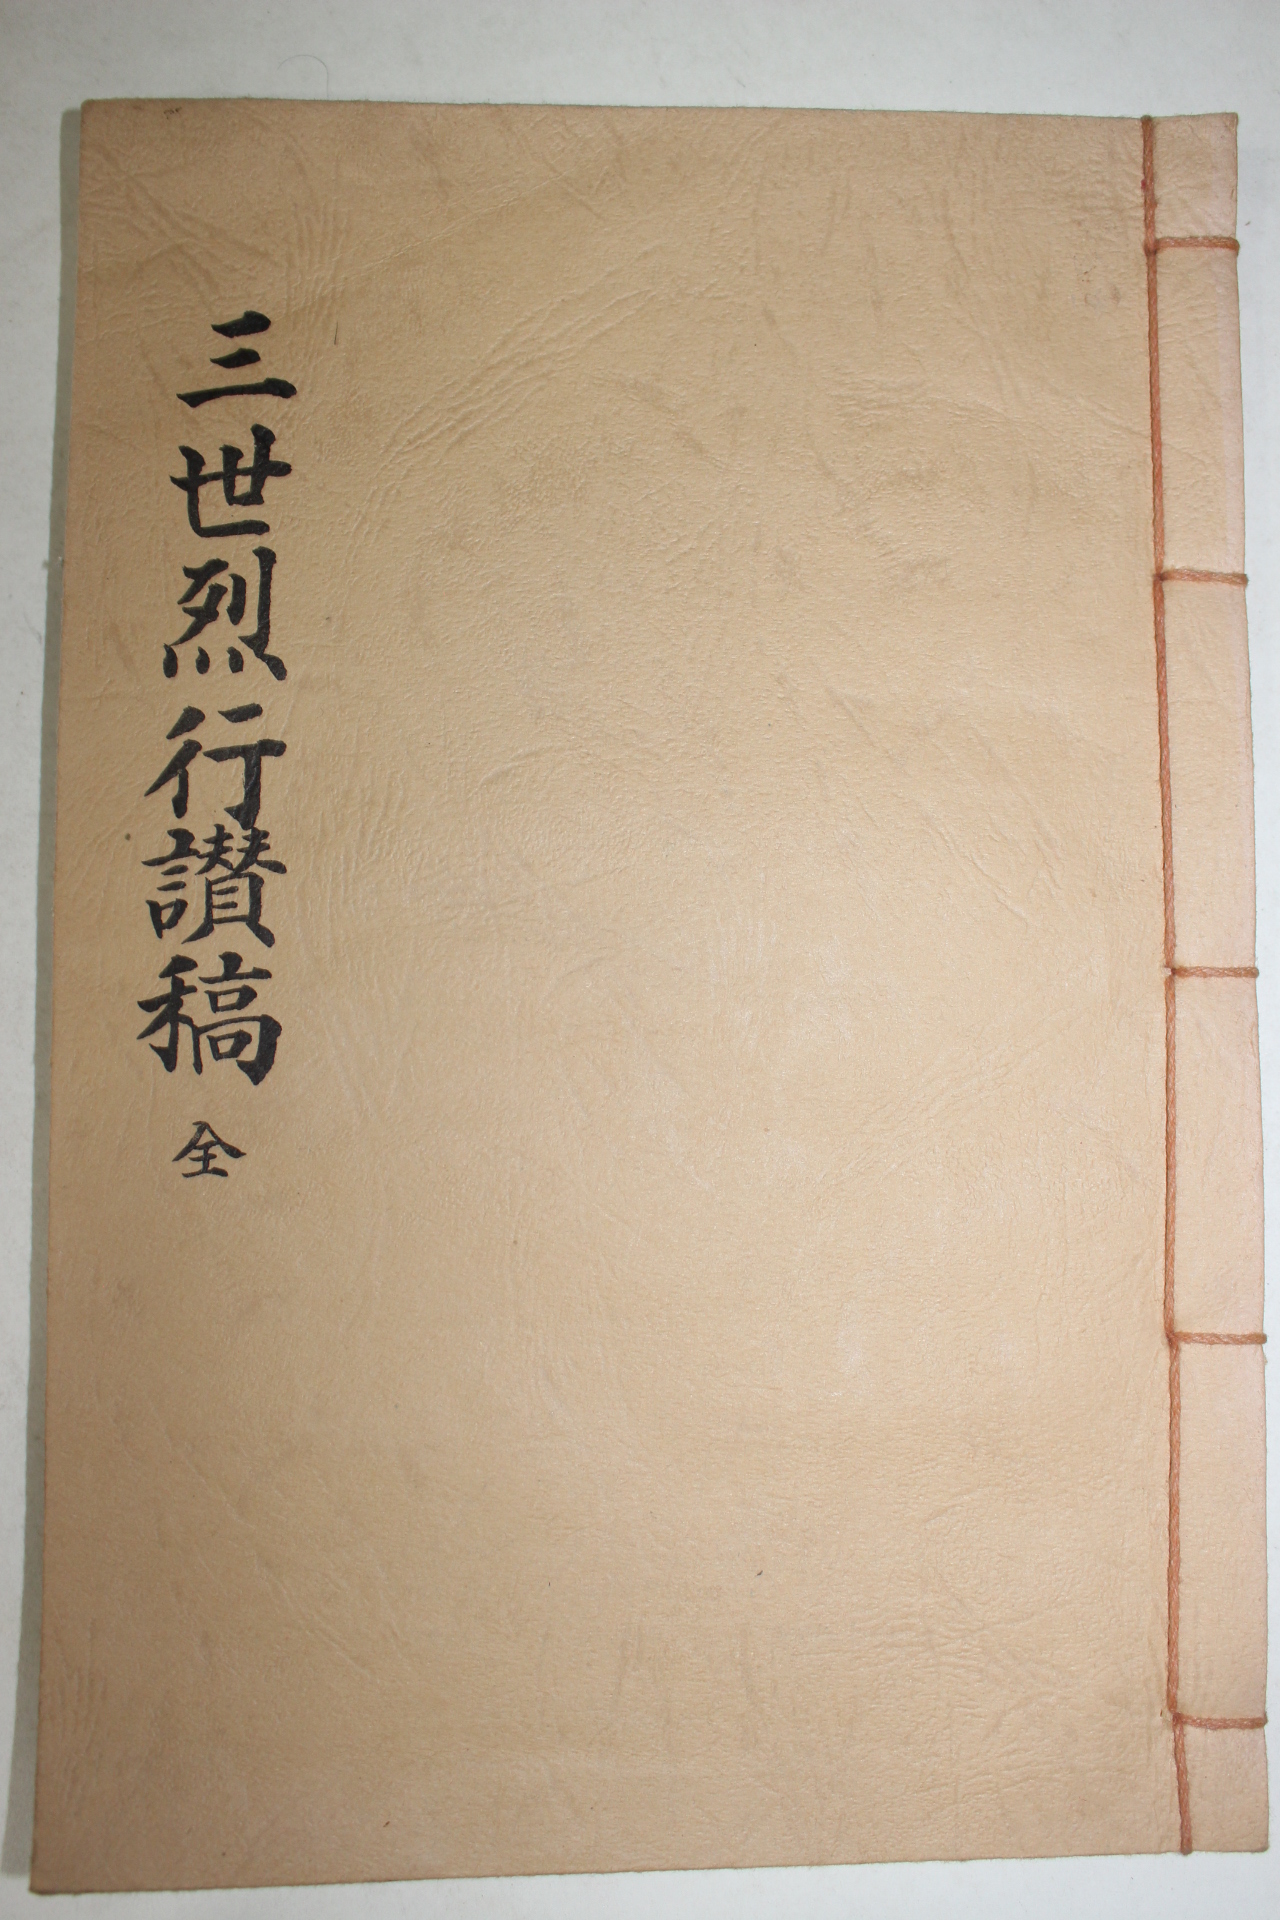 三世烈行讃稿 全